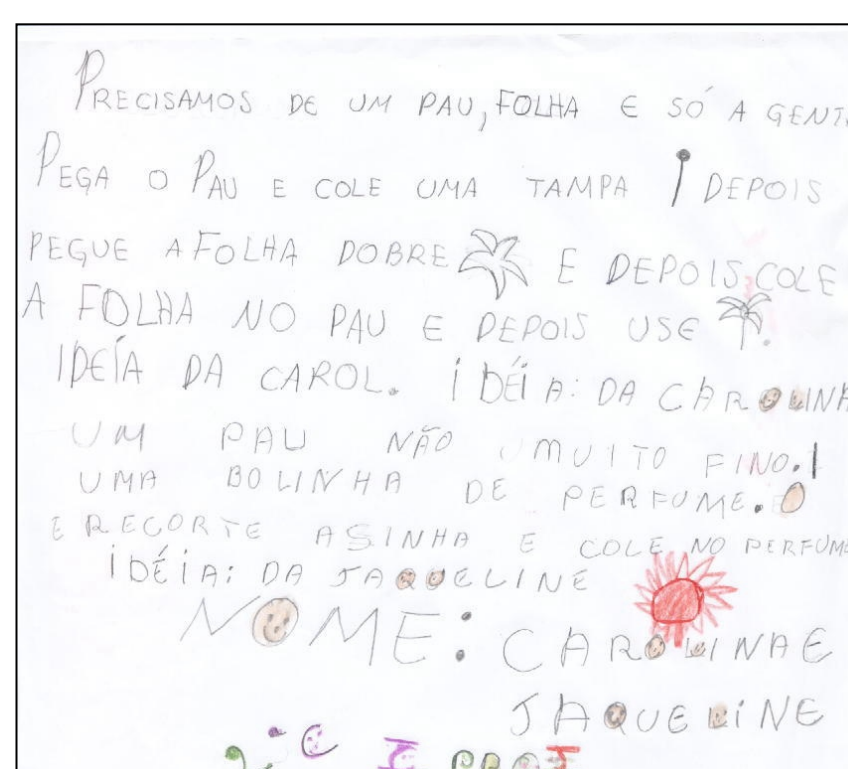 PRECISAMOS DE UM PAU, FOLHA E SÓ A GENTE
PEGA O PAU E COLE UMA TAMPA DEPOIS
PEGUE A FOLHA DOBRE E DEPOIS COLE
A FOLHA NO PAU E DEPOIS USE.
IDEÍA DA CAROL. IDÉIA: DA CAROLINA
UM PAU NÃO MUITO FINO.
UMA BOLINHA DE PERFUME.
E RECORTE ASINHA E COLE NO PERFUME
IDÉIA: DA JAQUELINE
NOME: CAROLINA E
JAQUELINE